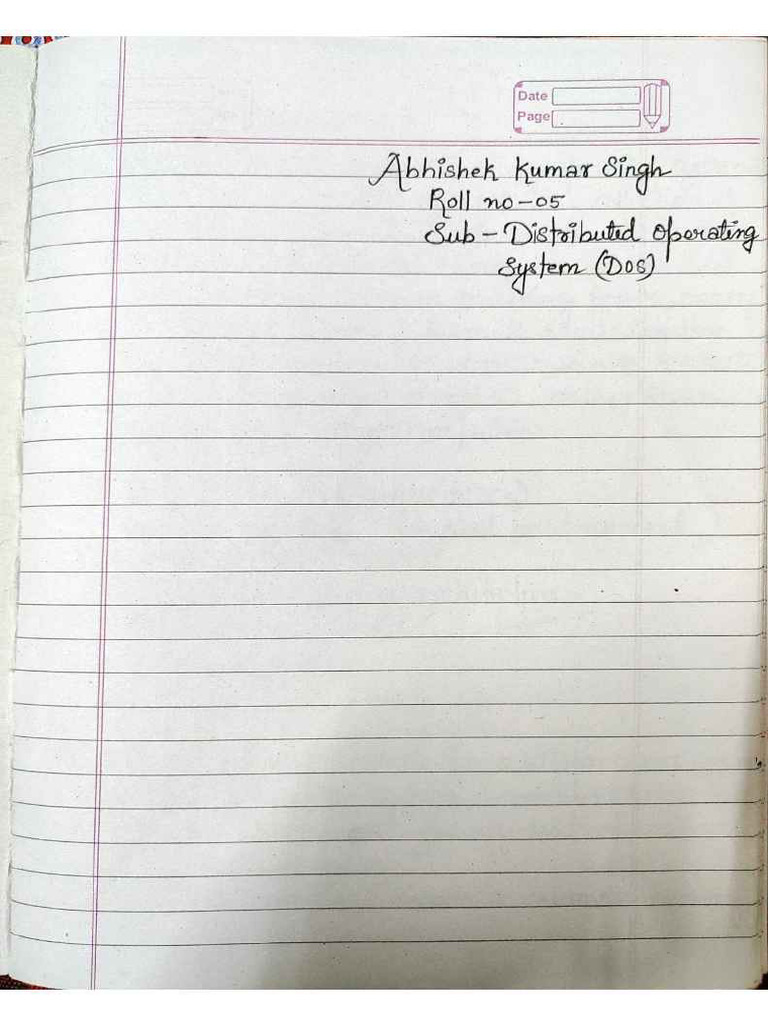 Date
Page
Abhishek Kumar Singh
Roll no-05
Sub - Distributed Operating
System (DOS)